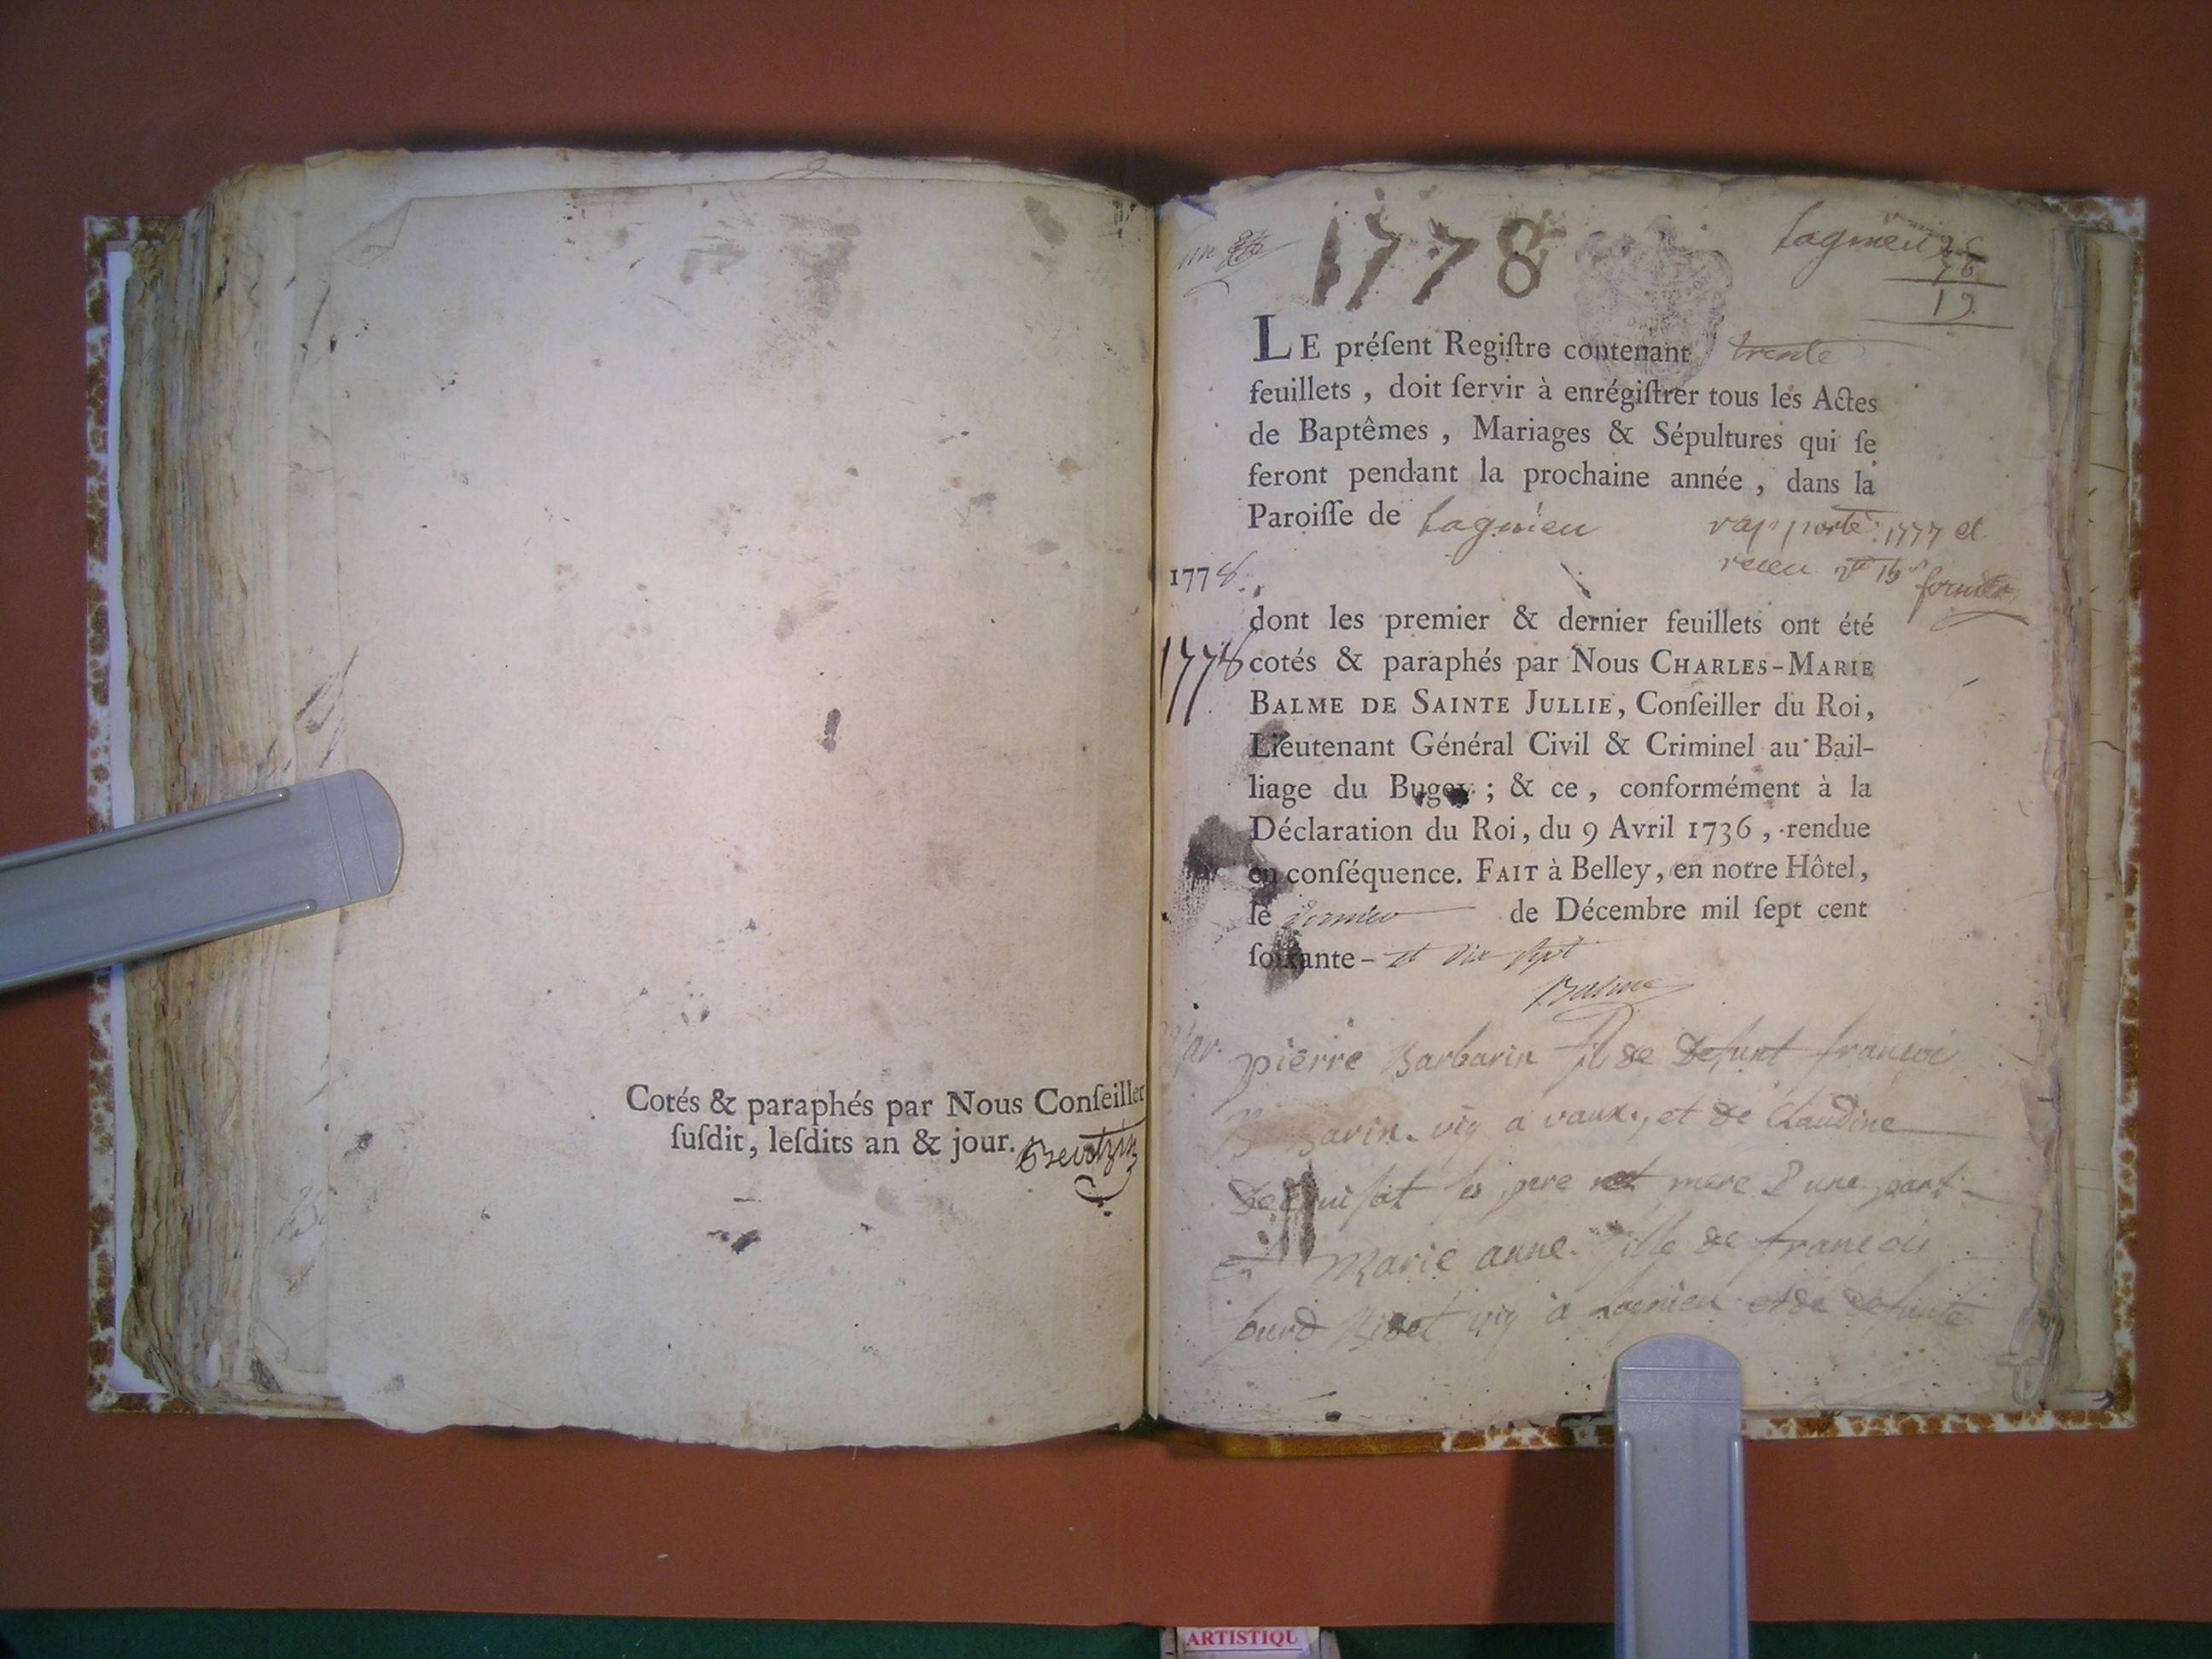 Cotés & paraphés par Nous Conſeiller
ſuſdit, leſdits an & jour.
1778
Lagnieu
19
LE préſent Regiſtre contenant trente
feuillets, doit ſervir à enrégiſtrer tous les Actes
de Baptêmes, Mariages & Sépultures qui ſe
feront pendant la prochaine année, dans la
Paroiſſe de Lagnieu
rapporté 1777 et
1778
dont les premier & dernier feuillets ont été
1778
cotés & paraphés par Nous CHARLES-MARIE
BALME DE SAINTE JULLIE, Conſeiller du Roi,
Lieutenant Général Civil & Criminel au Bail-
liage du Bugey; & ce, conformément à la
Déclaration du Roi, du 9 Avril 1736, rendue
en conſéquence. FAIT à Belley, en notre Hôtel,
le dernier de Décembre mil ſept cent
ſoixante- et dix sept
Balme
Mar.
pierre Barbarin fils de Defunt francoi
Barbarin vig a vaux, et de Claudine
pere et mere D'une part
et Marie anne fille de francois
vig a Lagnieu et de defunte
ARTISTIQU